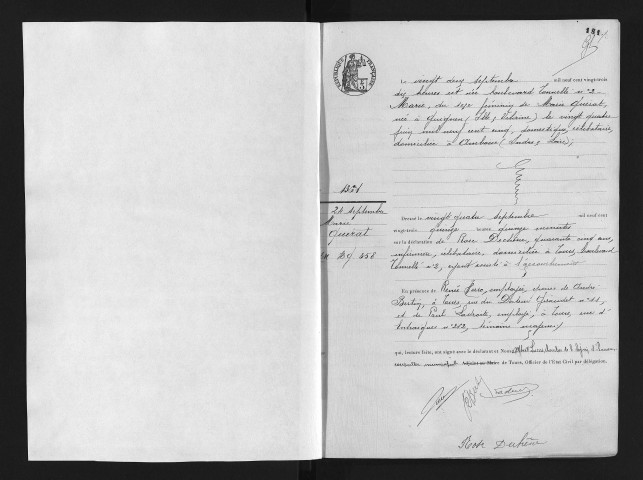 181
RÉPUBLIQUE FRANÇAISE
Le vingt deux septembre mil neuf cent vingt-trois
dix heures est née boulevard Tonnellé n° 2
Marie, du sexe féminin, de Marie Guérat,
née à Guignen (Ille & Vilaine) le vingt quatre
juin mil neuf cent cinq, domestique, célibataire,
domiciliée à Amboise (Indre & Loire),
1321
24 septembre
Marie
Guérat
Dressé le vingt quatre septembre mil neuf cent
vingt-trois quinze heures quinze minutes
sur la déclaration de Rose Duchêne, quarante cinq ans,
infirmière, célibataire, domiciliée à Tours, boulevard
Tonnellé n° 2, ayant assisté à l'accouchement
En présence de Renée employée, épouse de André
à Tours, rue du Docteur Giraudet n°
et de Paul employé, à Tours, rue d'
Entraigues n° 202, témoins majeurs,
qui, lecture faite, ont signé avec le déclarant et Nous
conseiller municipal Adjoint au Maire de Tours, Officier de l'État Civil par délégation.
Rose Duchêne